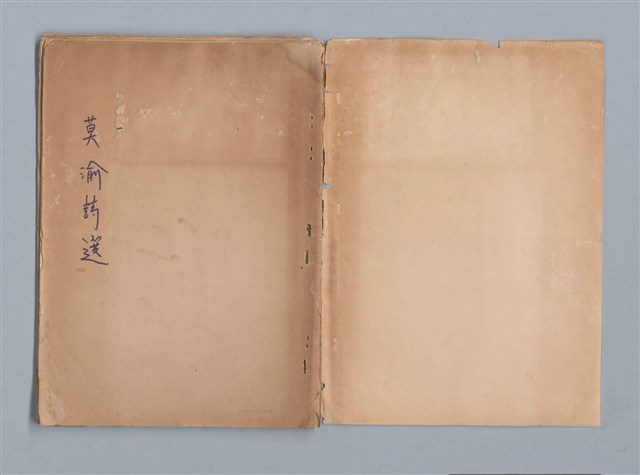 莫渝詩選